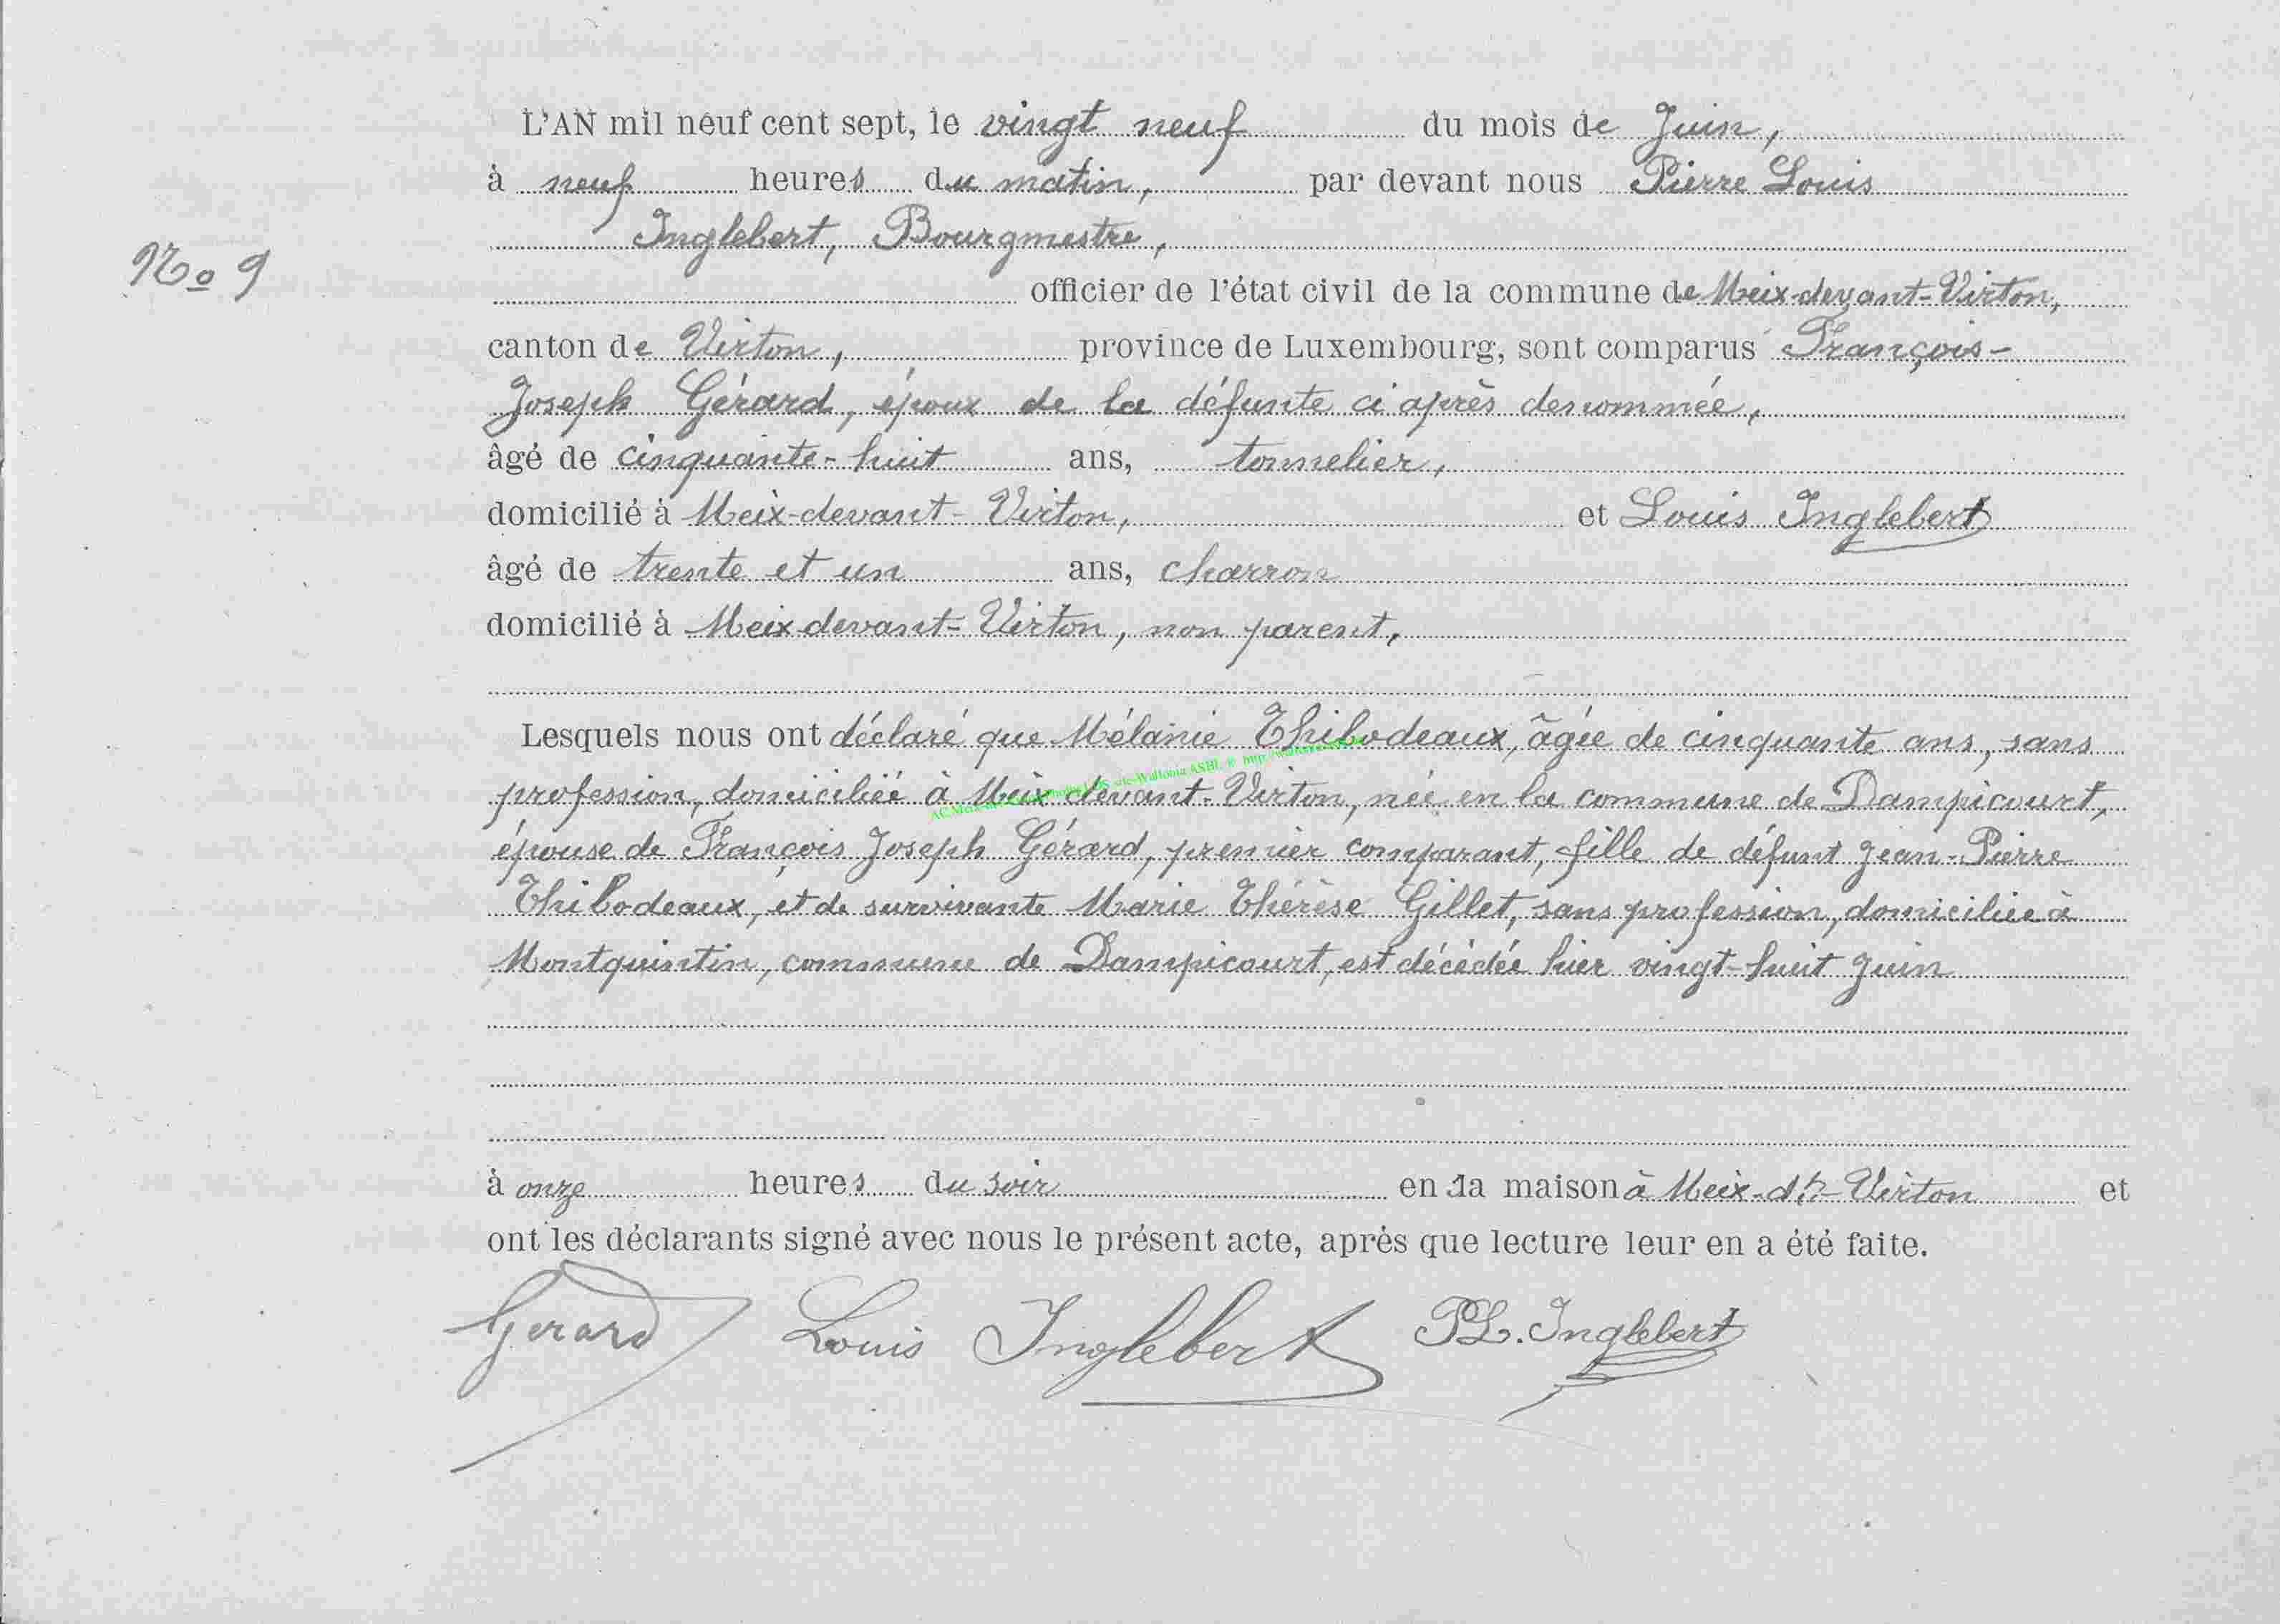 L'AN mil neuf cent sept, le vingt neuf du mois de Juin,
à neuf heures du matin, par devant nous Pierre Louis
Inglebert, Bourgmestre,
No 9
officier de l'état civil de la commune de Meix-devant-Virton,
canton de Virton, province de Luxembourg, sont comparus François-
Joseph Gérard, époux de la défunte ci après denommée,
âgé de cinquante-huit ans, tonnelier,
domicilié à Meix-devant-Virton, et Louis Inglebert
âgé de trente et un ans, charron
domicilié à Meix-devant-Virton, non parent,
Lesquels nous ont déclaré que Mélanie Thibodeaux, âgée de cinquante ans, sans
profession, domiciliée à Meix-devant-Virton, née en la commune de Dampicourt,
épouse de François Joseph Gérard, premier comparant, fille de défunt Jean-Pierre
Thibodeaux, et de survivante Marie Thérèse Gillet, sans profession, domiciliée à
Montquintin, commune de Dampicourt, est décédée hier vingt-huit Juin
à onze heures du soir en sa maison à Meix-dt-Virton et
ont les déclarants signé avec nous le présent acte, après que lecture leur en a été faite.
Gerard Louis Inglebert PL. Inglebert